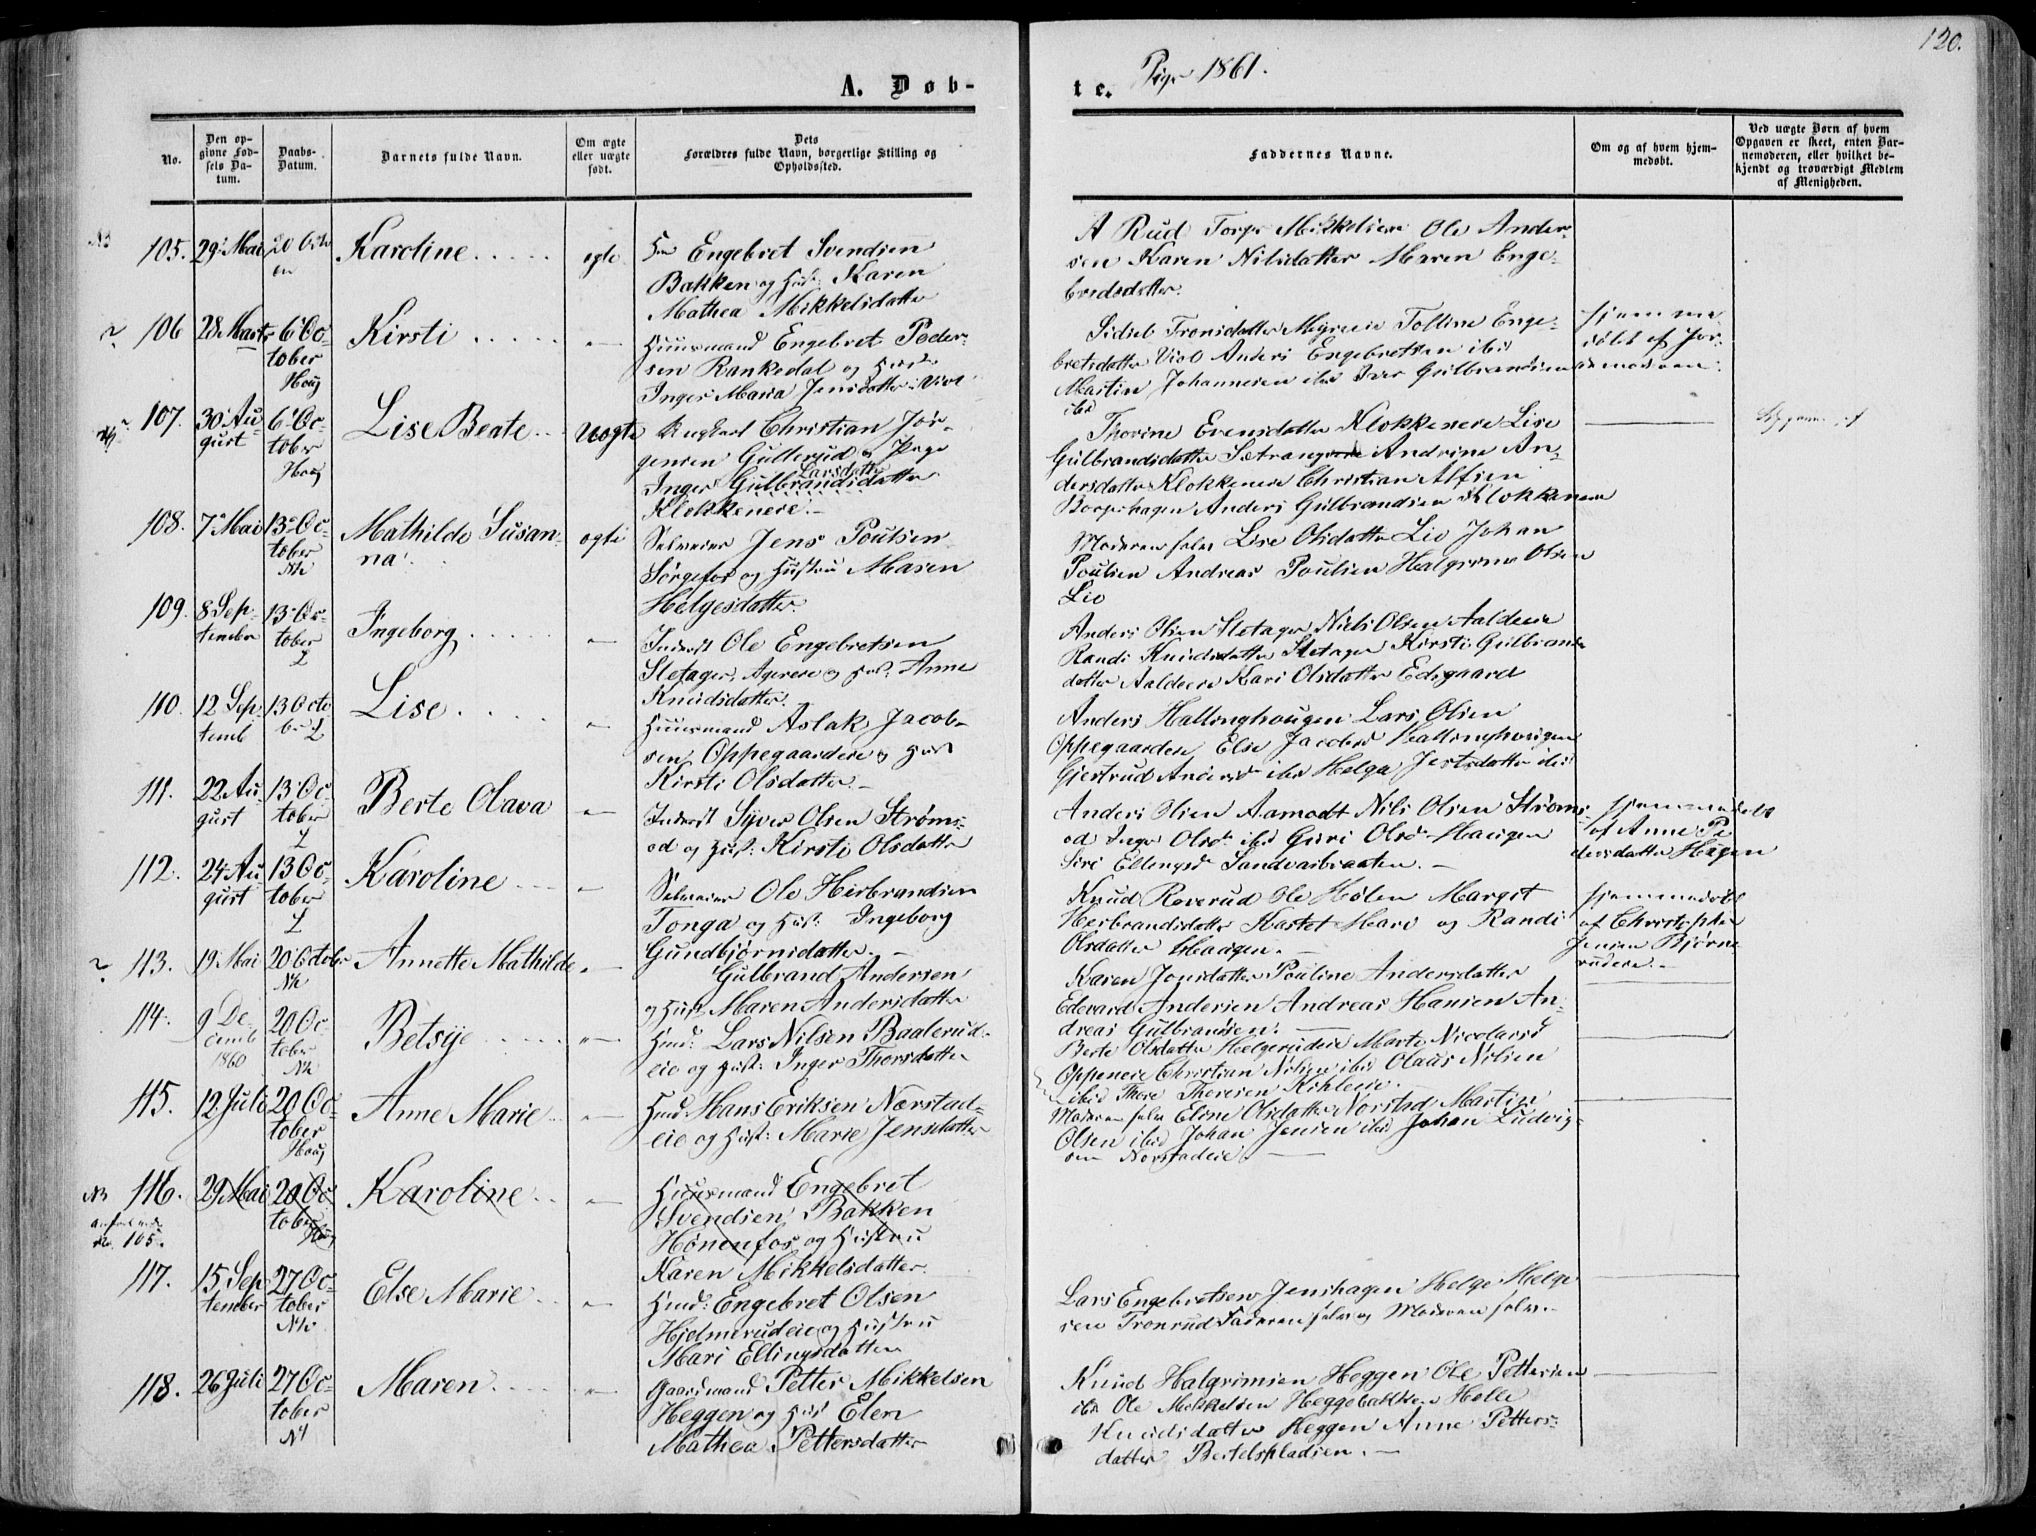 120.
A. Døb-
te.
Piger 1861.
No.
Den op-
givne Fød-
sels Da-
tum.
Daabs-
Datum.
Barnets fulde Navn.
Om ægte
eller uægte
født.
Dets
Forældres fulde Navn, borgerlige Stilling og
Opholdssted.
Faddernes Navne.
Om og af hvem hjem-
medøbt.
Ved uægte Børn af hvem
Opgaven er skeet, enten Bar-
nemoderen, eller hvilket be-
kjendt og troværdigt Medlem
af Menigheden.
105. 29 Mai 20 Karoline egte
Engebret Svendsen
Bakken og Hust: Karen
Mathea Mikkelsdatter
A Rud Mikkelsen Ole Ander-
sen Karen Nilsdatter Maren Enge-
bredsdatter.
106 28 Marts 6 Oc-
tober
Houg
Kirsti
Huusmand Engebret Peder-
sen Rankedal og Hust
Inger Maria Jensdatter Viol
Sidsel Tronsdatter Tolline Enge-
bretsdatter Viol Anders Engebretsen ibid
Martin Johannesen ibid Iver Gulbrandsen
ibid
hjemme
døbt af Jor-
demoderen
107. 30 Au-
gust
6 Oc-
tober
Houg
Lise Beate Uægte
Ungkarl Christian Jør-
gensen Gullerud og Pige
Inger Gulbrandsdatter
Larsdatter
Klokkereie
Thorine Evensdatter Klokkereie Lise
Gulbrandsdatter Andrine An-
dersdatter Klokkereie Christian Alfsen
Borgerhagen Anders Gulbrandsen Klokkereie
108. 7 Mai 13 Oc-
tober
Nh
Mathilde Susan-
na
egte
Selveier Jens Poulsen
Sørgefos og Hustru Maren
Helgesdatter.
Moderen selv Lise Olsdatter Lie Johan
Poulsen Andreas Poulsen Halgrim Olsen
Lie
109. 8 Sep-
tember
13 Oc-
tober
L
Ingeborg
Inderst Ole Engebretsen
Sletager og Hust: Anne
Knudsdatter.
Anders Olsen Sletager Niels Olsen
Randi Knudsdatter Sletager Kirsti Gulbrands-
datter Kari Olsdatter
110. 12 Sep-
temb
13 Octo
ber L
Lise
Huusmand Aslak Jacob-
sen Oppegaardeie og Hust
Kirsti Olsdatter
Anders Hallinghougen Lars Olsen
Oppegaarden Else Jacobsd Hallinghougen
Gjertrud Andersd ibid Helga Jensdatter ibid
111. 22 Au-
gust
13 Oc-
tober
L
Berte Olava
Inderst Syver Olsen Strøms-
od og Hust: Kirsti Olsdatter
Anders Olsen Aamodt Nils Olsen Strøms-
od Inger Olsd ibid Guri Olsd Haugen
Siri Ellingsd Sandvasbraaten.
hjemmedøbt
af Anne Pe-
dersdatter Hagen
112. 24 Au-
gust
13 Oc-
tober
L
Karoline
Selveier Ole Herbrandsen
Tonga og Hust: Ingeborg
Gundbjørnsdatter.
Knud Roverud Ole Holen Margit
Herbrandsdatter Mari og Randi
Olsdatter Haugen.
hjemmedøbt
af Christoffer
Jensen Bjørne-
rudeie.
113. 19 Mai 20 October
Nh
Annette Mathilde
Gulbrand Andersen
og Hust Maren Andersdatter
Karen Jonsdatter Pouline Andersdatter
Edvard Andersen Andreas Hansen An-
dreas Gulbrandsen.
114. 9 De-
cemb
1860
20 Oc-
tober
Nh
Betsye
Hmd: Lars Nilsen Baalerud-
eie og Hust: Inger Thorsdatter
Berte Olsdatter Helgerudeie Marte Nicolaisd
Oppeneie Christian Nilsen ibid Olaus Nilsen
ibid Thore Thoresen
115. 12 Juli 20 Oc-
tober
Houg
Anne Marie
Hmd Hans Eriksen Norstad-
eie og Hust: Marie Jensdatter
Moderen selv Eline Olsdatter Norstad Martin
Olsen ibid Johan Jensen ibid Johan Ludvig-
sen Norstadeie
116. 29 Mai 20 Oc-
tober
Houg
Karoline
Huusmand Engebret
Svendsen Bakken
Hønenfos og Hustru
Karen Mikkelsdatter
No. 105.
117. 15 Sep-
tember
27 Oc-
tober
Nh
Else Marie
Hmd: Engebret Olsen
Hjelmerudeie og Hustru
Mari Ellingsdatter
Lars Engebretsen Jenshagen Helge Helge-
sen Tronrud Faderen selv og Moderen selv.
118. 26 Juli 27 Oc-
tober
Maren
Gaardmand Petter Mikkelsen
Heggen og Hust Elen
Mathea Pettersdatter
Knud Halgrimsen Heggen Ole Pettersen
ibid Ole Mikkelsen Heggebakken Helle
Knudsdatter Heggen Anne Petters-
datter Bertelspladsen.